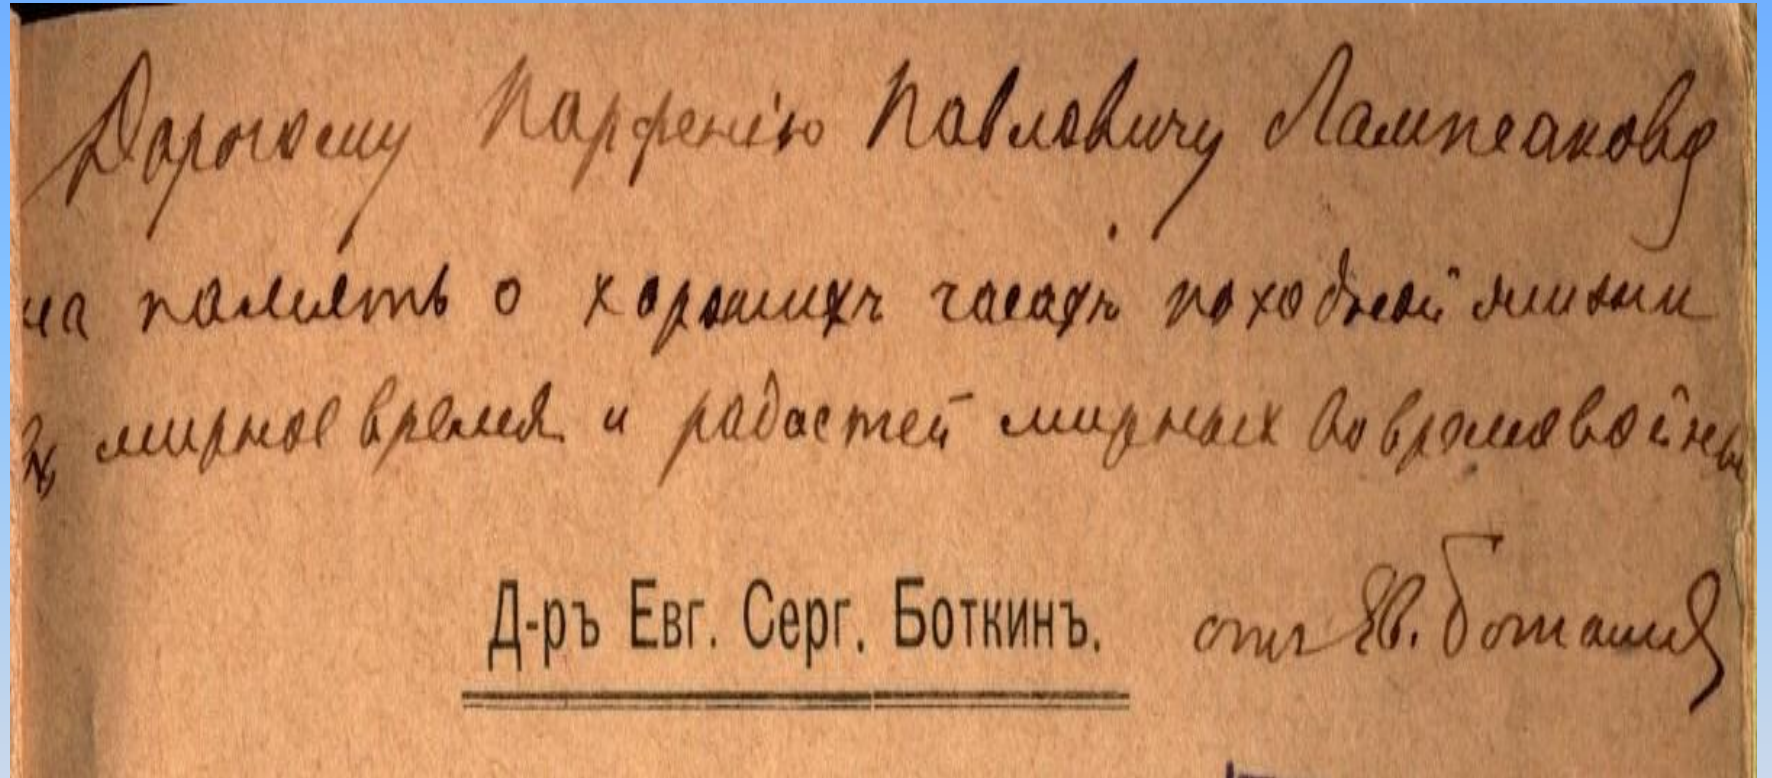 Дорогому Парфенію Павловичу Лампсакову
на память о хорошихъ часахъ походной жизни
въ мирное время и радостей мирныхъ во время войны
Д-ръ Евг. Серг. Боткинъ.
отъ Ев. Боткина